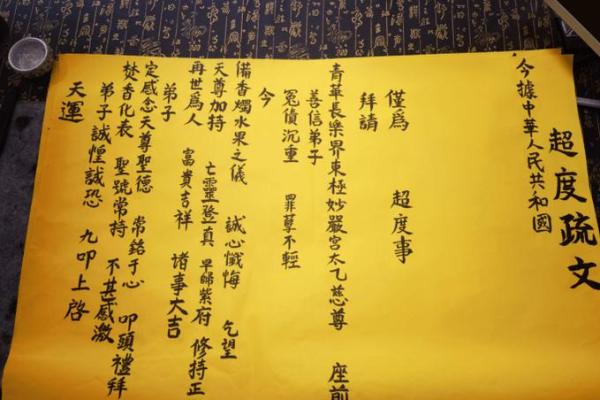 超度疏文
今據中華人民共和國
僅爲 超度事
拜請
青華長樂界東極妙嚴宮太乙慈尊 座前
善信弟子
冤債沉重 罪孽不輕
今
備香燭水果之儀 誠心懺悔 乞望
天尊加持 亡靈登真 早歸紫府 修持正
再世爲人 富貴吉祥 諸事大吉
弟子
定感念天尊聖德 常銘于心 叩頭禮拜
焚香化表 聖號常持 不甚感激
弟子誠惶誠恐 九叩上啓
天運